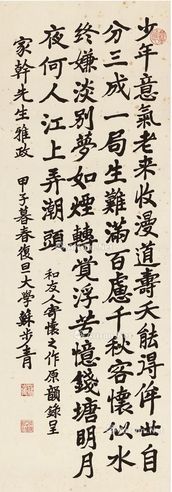 少年意氣老來收漫道壽夭能淂侔世自
分三成一局生難滿百慮千秋客懷似水
終嫌淡別夢如煙轉覺浮苦憶錢塘明月
夜何人江上弄潮頭
和友人寄懷之作原韻錄呈
家幹先生雅政
甲子暮春復旦大學蘇步青